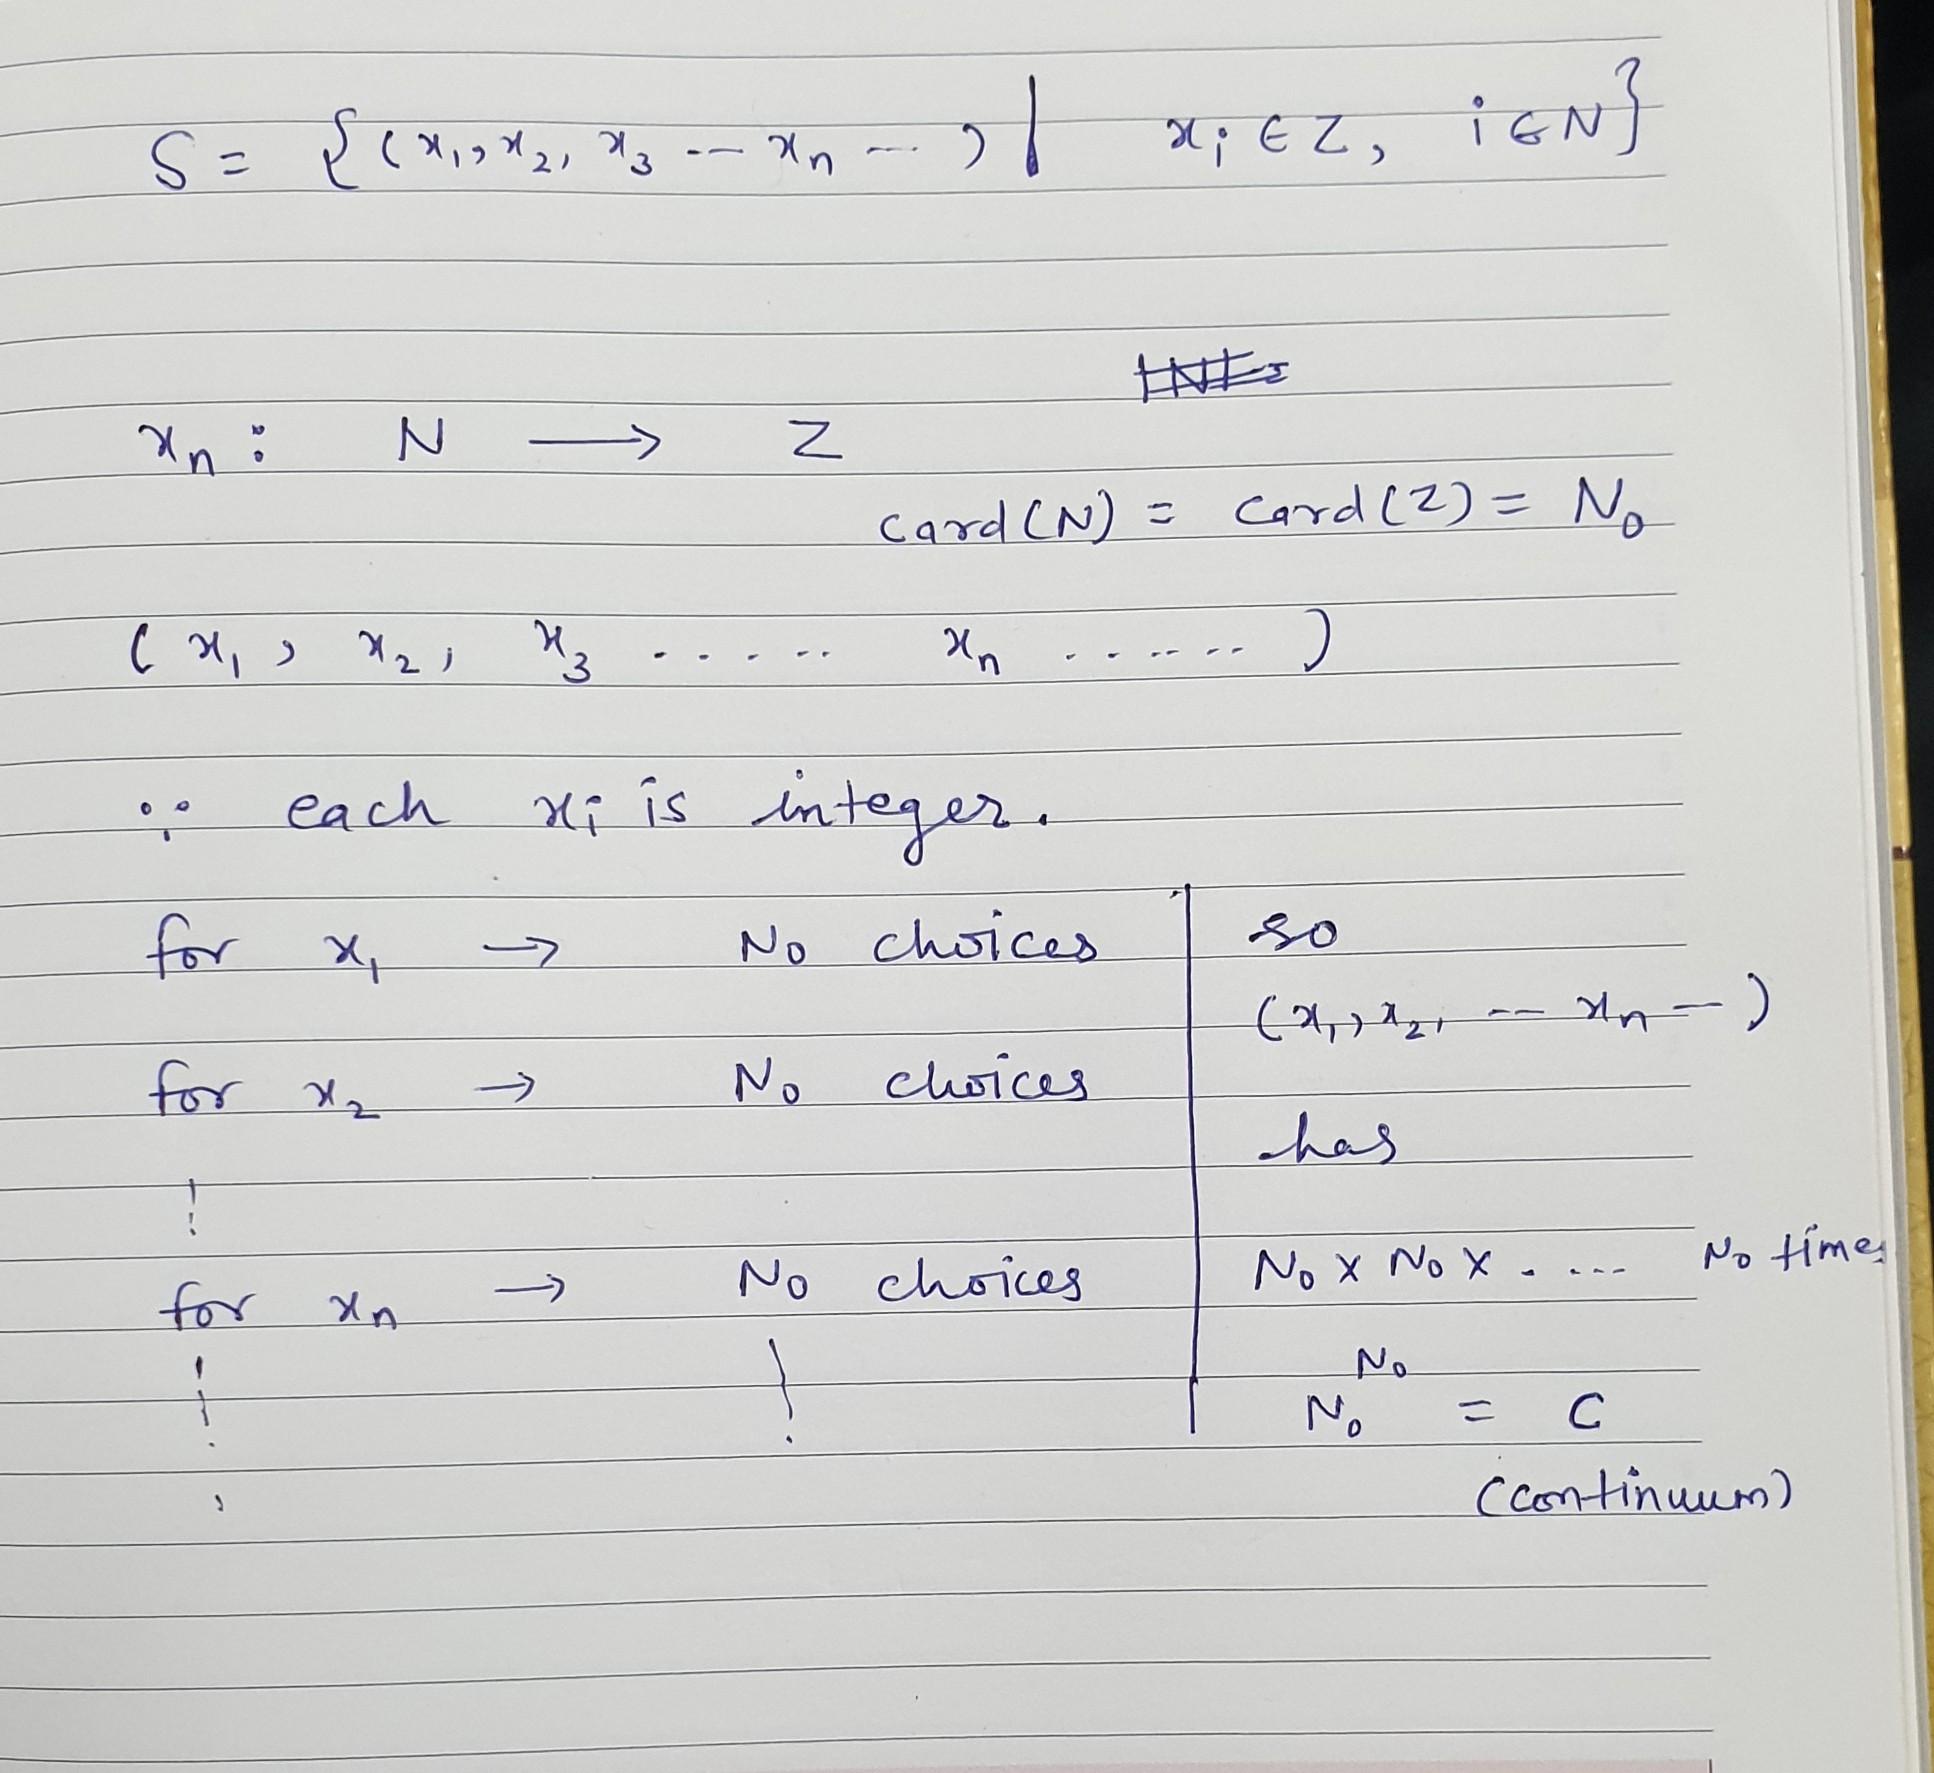 S = { (x₁, x₂, x₃ -- xₙ -- ) | xᵢ ∈ Z, i ∈ N }
xₙ : N ⟶ Z
card(N) = card(Z) = N₀
( x₁ , x₂ , x₃ ..... xₙ ...... )
∵ each xᵢ is integer.
for x₁ → N₀ choices
for x₂ → N₀ choices
for xₙ → N₀ choices
so
(x₁, x₂, -- xₙ -- )
has
N₀ x N₀ x . ... N₀ times
N₀^N₀ = C
(continuum)